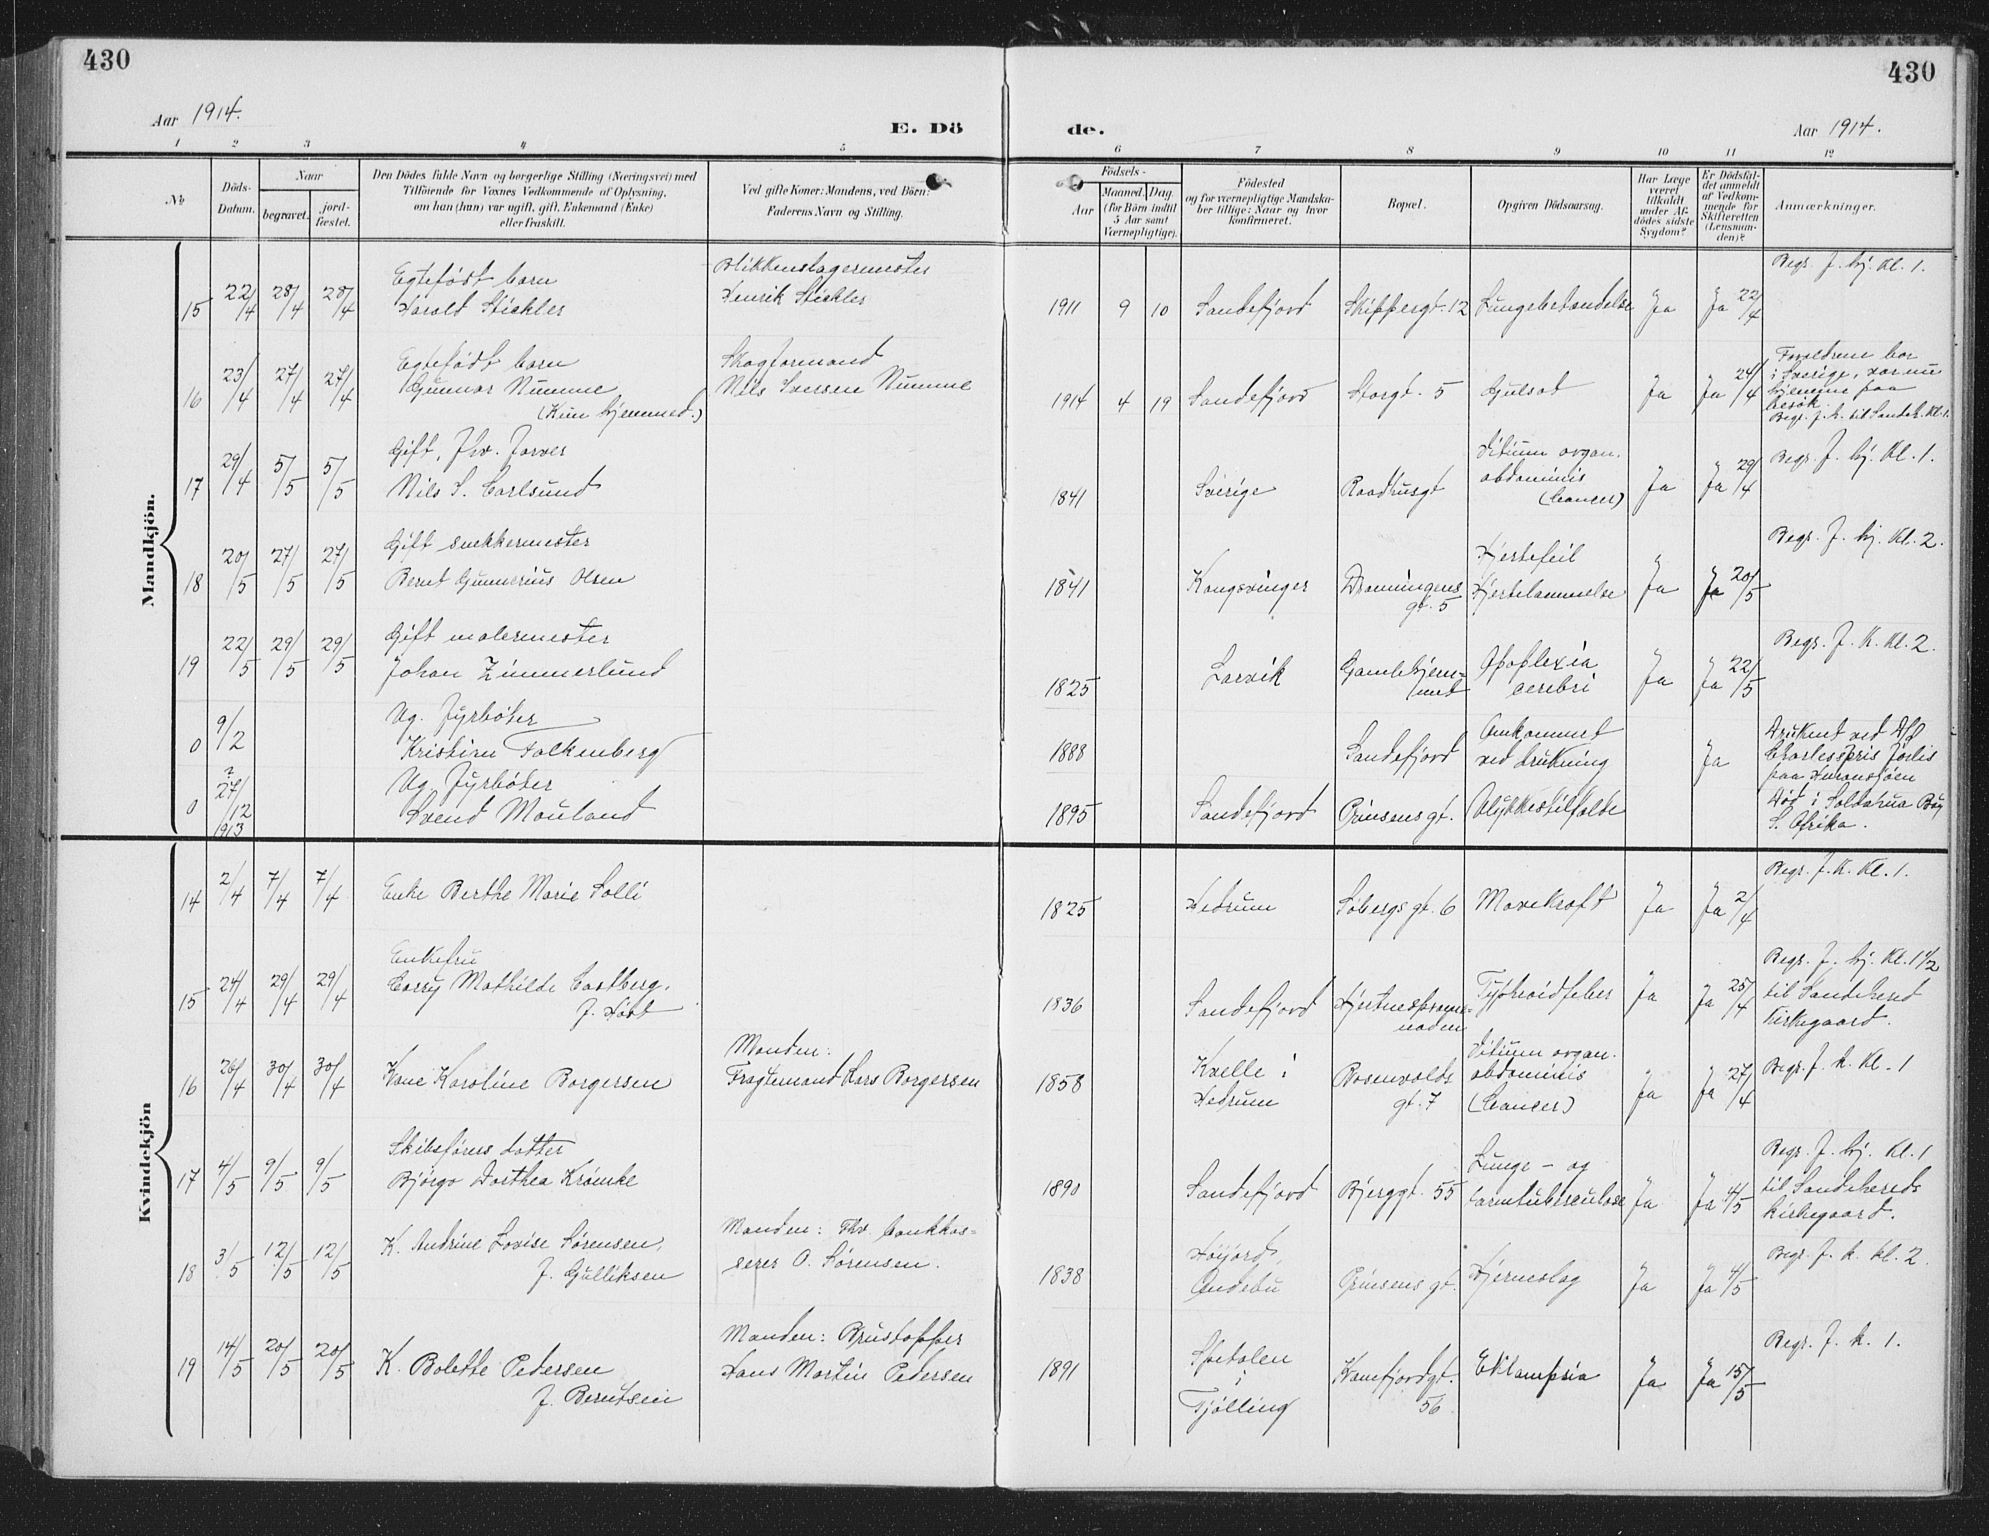 430
430
Aar 1914.
E. Dö
de.
Aar 1914.
1 2 3 4 5 6 7 8 9 10 11 12
No
Döds-
Datum.
Naar
begravet.
jord-
fæstet.
Den Dödes fulde Navn og borgerlige Stilling (Næringsvei) med
Tilföiende for Voxnes Vedkommende af Oplysning,
om han (hun) var ugift, gift, Enkemand (Enke)
eller fraskilt.
Ved gifte Koner: Mandens, ved Börn:
Faderens Navn og Stilling.
Födsels-
Aar
Maaned. Dag.
(for Börn indtil
5 Aar samt
Værnepligtige).
Födested
og for værnepligtige Mandska-
ber tillige: Naar og hvor
konfirmeret.
Bopæl.
Opgiven Dödsaarsag.
Har Læge
været
tilkaldt
under Af-
dödes sidste
Sygdom?
Er Dödsfal-
det anmeldt
af Vedkom-
mende for
Skifteretten
(Lensman-
den)?
Anmærkninger.
Mandkjön.
15 22/4 28/4 28/4 Egtefødt barn
Harold Stickler
Blikkenslagermester
Henrik Stickler
1911 9 10 Sandefjord Skippergt. 12 Lungebetændelse Ja Ja 22/4
Begr. f. hj. Kl. 1.
16 23/4 27/4 27/4 Egtefødt barn
Gunnar Numme
(Kun hjemmed.)
Skogformand
Nils Iversen Numme
1914 4 19 Sandefjord Storgt. 5 Gulsot Ja Ja 24/4
Forældrene bor
i Sverige, var nu
hjemme paa
besøk.
Begr. f. k. til Sandeh. Kl. 1.
17 29/4 5/5 5/5 Gift, fhv. farver
Nils S. Carlsund
1841 Sverige Raadhusgt
Vitium organ.
abdominis
(Cancer)
Ja Ja 29/4
Begr. f. hj. Kl. 1.
18 20/5 27/5 27/5 Gift snekkermester
Bernt Gunnerius Olsen
1841 Kongsvinger Dronningens
gt. 5
Hjertefeil
Hjertelammelse
Ja Ja 20/5
Begr. f. hj. Kl. 2.
19 22/5 29/5 29/5 Gift malermester
Johan Zimmerlund
1825 Larvik Gamlehjem-
met
Apoplexia
cerebri
Ja Ja 22/5
Begr. f. K. Kl. 2.
0 9/2 Ug. Fyrbøter
Kristian Falkenberg
1888 Sandefjord
Omkommet
ved drukning
Ja
Druknet ved
paa
0 ? 27/12 1913 Ug. Fyrbøter
Svend Mouland
1895 Sandefjord Prinsens gt. Ulykkestilfælde
Død i Saldahna Bay
S. Afrika.
Kvindekjön
14 2/4 7/4 7/4 Enke Berthe Marie Solli
1825 Hedrum Søbergs gt. 6 Mavekræft Ja Ja 2/4
Begr. f. K. Kl. 1.
15 24/4 29/4 29/4 Enkefru
Mathilde Castberg,
f. Høst
1836 Sandefjord Hjertnesprome-
naden
Typhoidfeber Ja Ja 25/4
Begr. f. hj. Kl. 1 1/2
til Sandehered
Kirkegaard.
16 26/4 30/4 30/4 Kone Karoline Borgersen
Manden:
Fragtemand Lars Borgersen
1858 Kvelle i
Hedrum
Rosenvolds
gt. 7
Vitium organ.
abdominis
(Cancer)
Ja Ja 27/4
Begr. f. k. Kl. 1
17 4/5 9/5 9/5 Skibsførers datter
Borghild Dorthea Krømke
1890 Sandefjord Bjerggt. 55
Lunge- og
tarmtuberculose
Ja Ja 4/5
Begr. f. hj. Kl. 1
til Sandehereds
kirkegaard.
18 3/5 12/5 12/5 K. Andrine Lovise Sørensen,
f. Gulliksen
Manden: Fhv. bankkas-
serer O. Sørensen.
1838 Høijord,
Andebu
Prinsens gt. Hjerneslag Ja Ja 4/5
Begr. f. k. kl. 2
19 14/5 20/5 20/5 K. Bolette Pedersen
f. Berntsen
Manden:
Hans Martin Pedersen
1891
i
Tjølling
Kamfjordgt.
56
Eklampsia Ja Ja 15/5
Begr. f. k. 1.